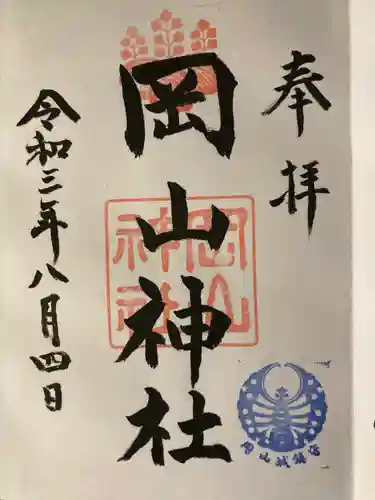 奉拝
岡山神社
令和三年八月四日
岡山
神社
岡山城鎮守